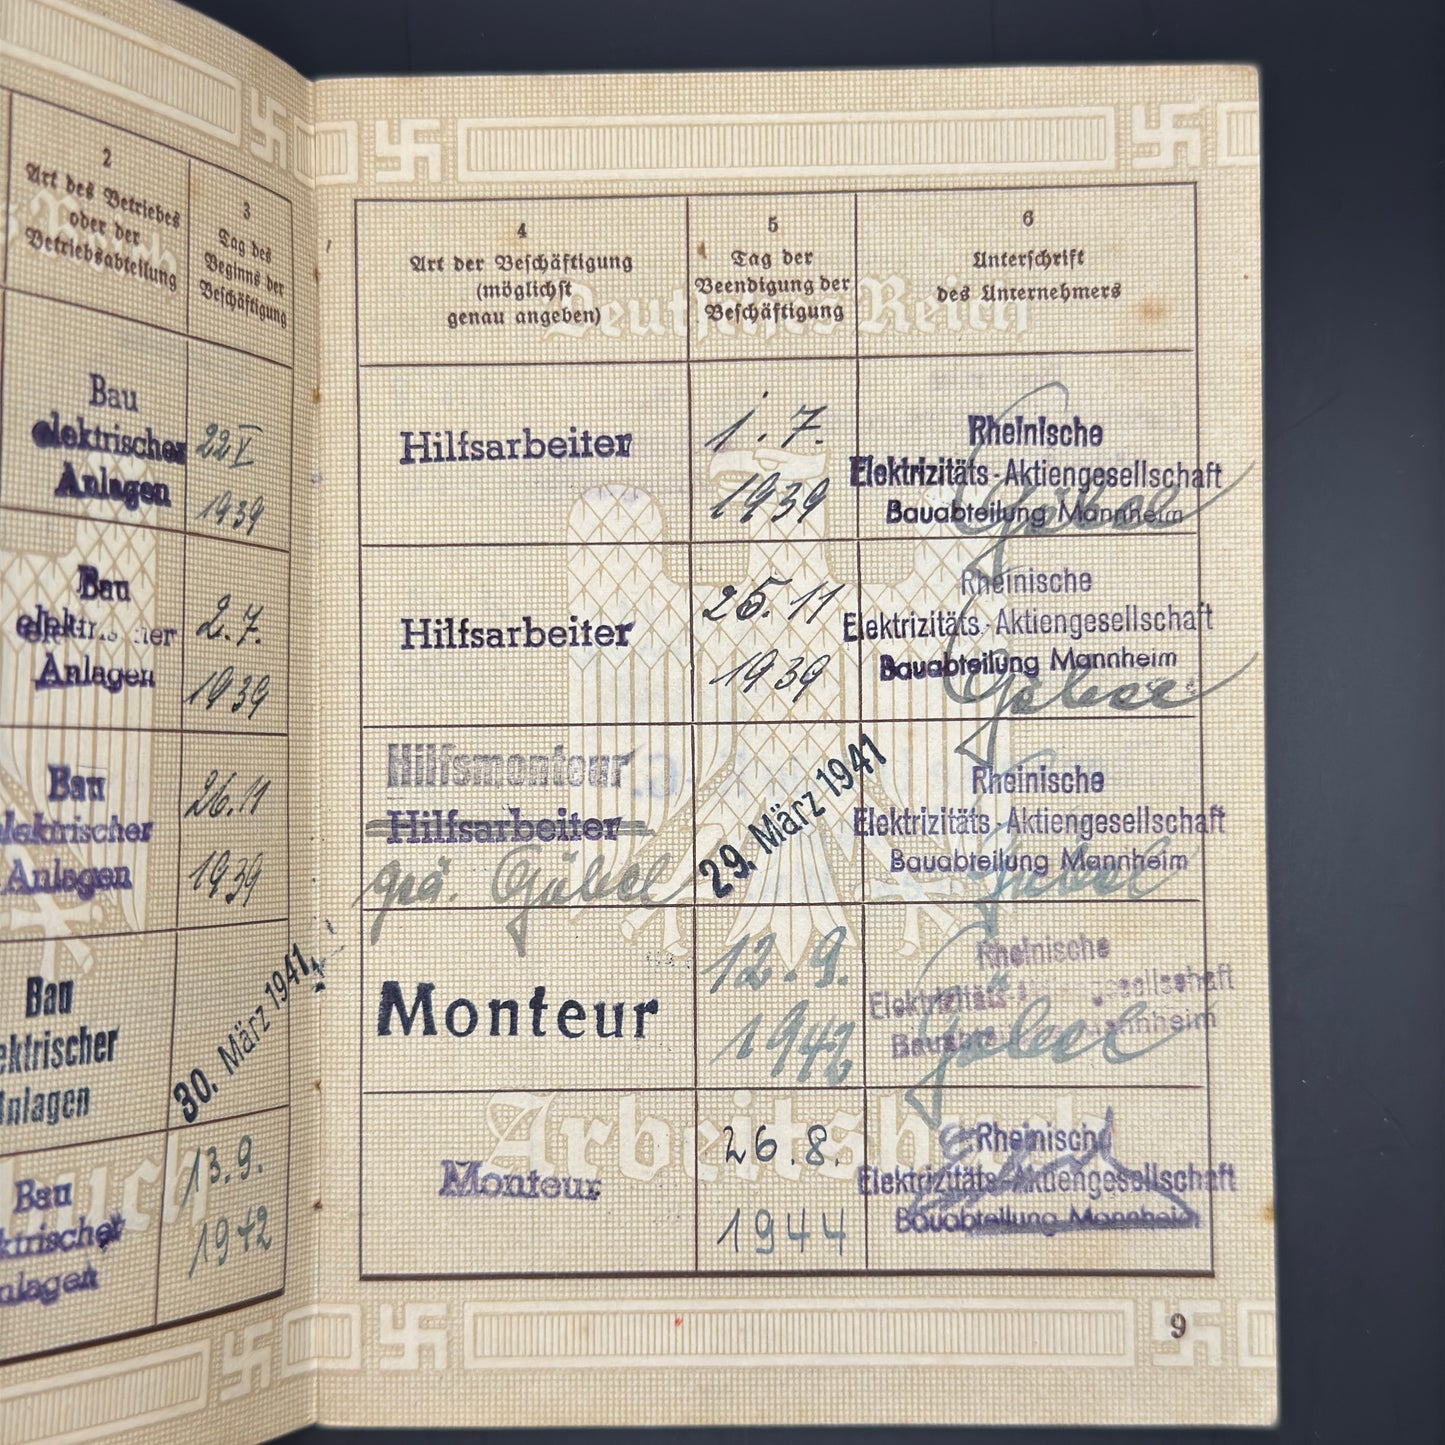 2
Art des Betriebes
oder der
Betriebsabteilung
3
Tag des
Beginns der
Beschäftigung
Bau
elektrischer
Anlagen
22 V
1939
Bau
Anlagen
2.7.
1939
Bau
elektrischer
Anlagen
26.11
1939
Bau
ektrischer
nlagen
30. März 1941
Bau
ktrischer
nlagen
13.9.
1942
4
Art der Beschäftigung
(möglichst
genau angeben)
5
Tag der
Beendigung der
Beschäftigung
6
Unterschrift
des Unternehmers
Deutsches Reich
Hilfsarbeiter
1.7.
1939
Rheinische
Elektrizitäts-Aktiengesellschaft
Bauabteilung Mannheim
Göbel
Hilfsarbeiter
25.11
1939
Rheinische
Elektrizitäts-Aktiengesellschaft
Bauabteilung Mannheim
Göbel
Hilfsmonteur
Hilfsarbeiter
Göbel
29. März 1941
Rheinische
Elektrizitäts-Aktiengesellschaft
Bauabteilung Mannheim
Göbel
Monteur
12.9.
1942
Rheinische
Elektrizitäts-Aktiengesellschaft
Bauabteilung Mannheim
Göbel
Arbeitsbuch
Monteur
26.8.
1944
Rheinische
Elektrizitäts-Aktiengesellschaft
Bauabteilung Mannheim
9